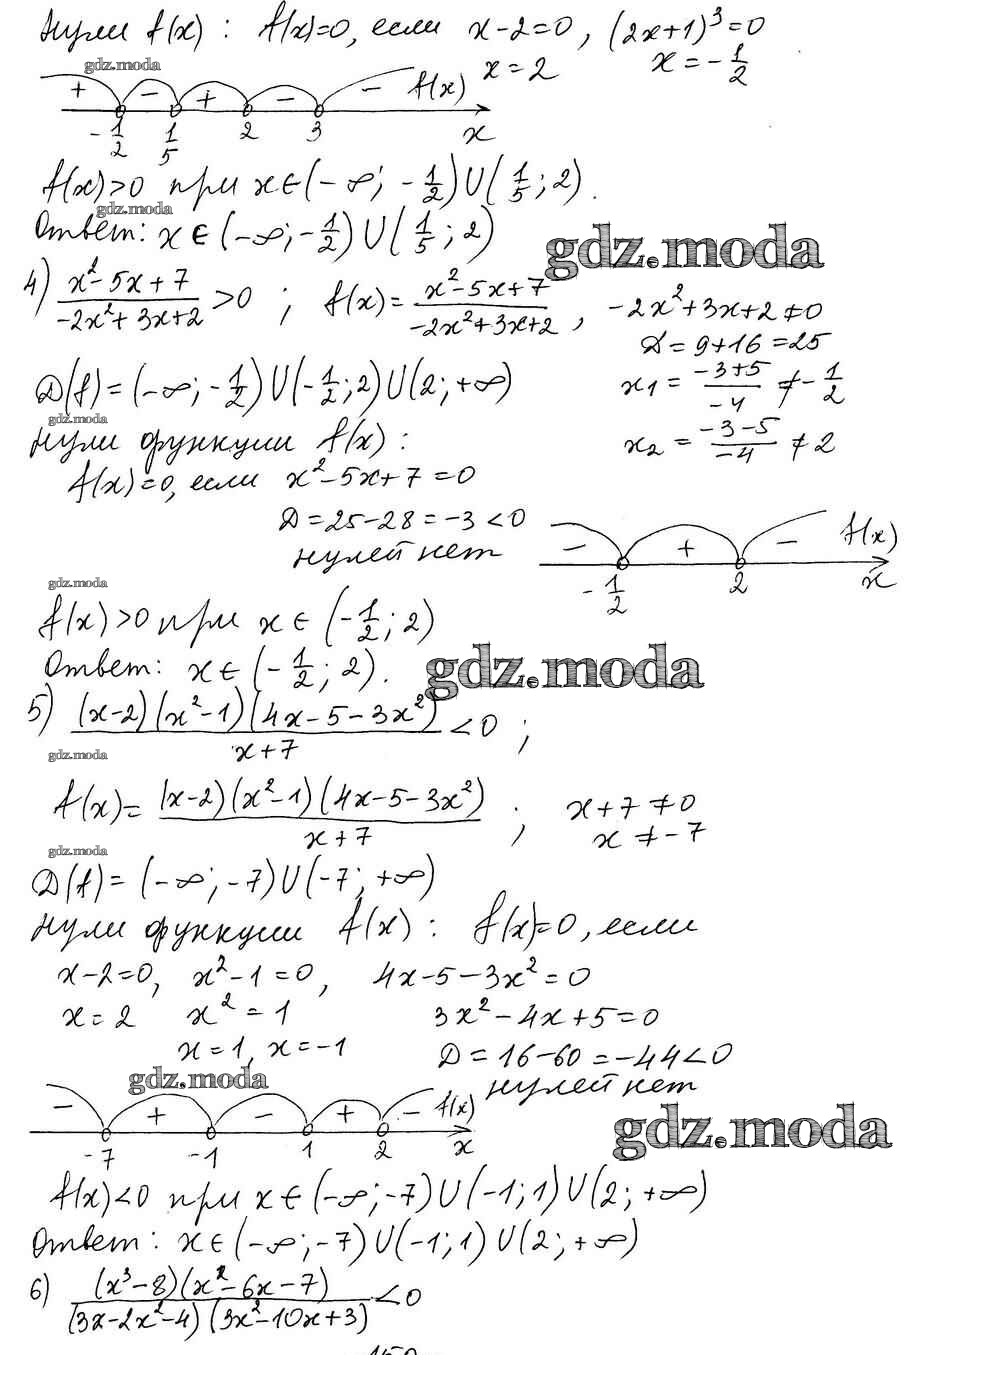 Нули f(x) : f(x)=0, если x-2=0, (2x+1)³=0
gdz.moda x=2 x=-1/2
+ - + - - f(x)
-1/2 1/5 2 3 x
f(x)>0 при x∈(-∞; -1/2)∪(1/5; 2).
gdz.moda
Ответ: x∈(-∞; -1/2)∪(1/5; 2)
gdz.moda
4) (x²-5x+7)/(-2x²+3x+2) >0 ; f(x)= (x²-5x+7)/(-2x²+3x+2) , -2x²+3x+2≠0
D=9+16=25
D(f)=(-∞; -1/2)∪(-1/2; 2)∪(2; +∞) x1 = (-3+5)/-4 ≠ -1/2
gdz.moda
Нули функции f(x): x2 = (-3-5)/-4 ≠ 2
f(x)=0, если x²-5x+7=0
D=25-28=-3<0
нулей нет
- + - f(x)
-1/2 2 x
gdz.moda
f(x)>0 при x∈(-1/2; 2)
Ответ: x∈(-1/2; 2).
gdz.moda
5) (x-2)(x²-1)(4x-5-3x²)/(x+7) <0 ;
gdz.moda
f(x)= (x-2)(x²-1)(4x-5-3x²)/(x+7) ; x+7≠0
x≠-7
gdz.moda
D(f)=(-∞; -7)∪(-7; +∞)
Нули функции f(x): f(x)=0, если
x-2=0, x²-1=0, 4x-5-3x²=0
x=2 x²=1 3x²-4x+5=0
x=1, x=-1 D=16-60=-44<0
gdz.moda нулей нет
- + - + - f(x)
-7 -1 1 2 x
gdz.moda
f(x)<0 при x∈(-∞; -7)∪(-1; 1)∪(2; +∞)
Ответ: x∈(-∞; -7)∪(-1; 1)∪(2; +∞)
6) (x³-8)(x²-6x-7)/(3x-2x²-4)(3x²-10x+3) <0